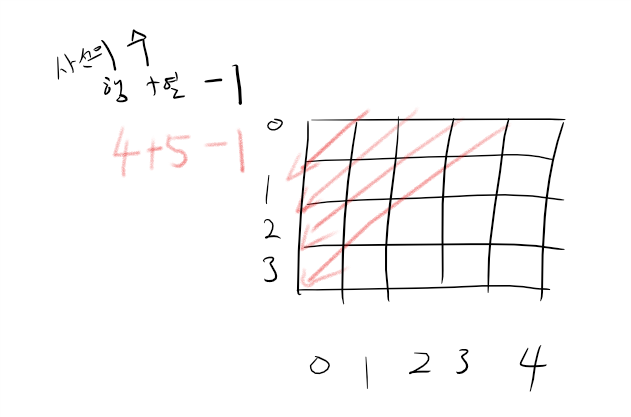 사선의 수
행 +열 -1
4+5-1
0
1
2
3
0 1 2 3 4